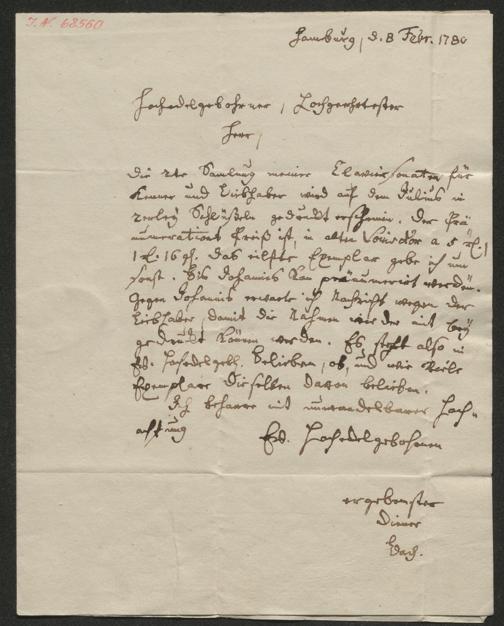 I. N. 68560
Hamburg, d. 8 Febr. 1780
Hochedelgebohrner, Hochgeehrtester
Herr,
Die 2te Samlung meiner Claviersonaten für
Kenner und Liebhaber wird auf dem Julius in
2erley Schlüßeln gedruckt erscheinen. Der Prä
numerations Preiß ist, in alten Louisdor a 5 rl.,
1 rl. 16 gl. Das eilfte Exemplar gebe ich um
sonst. Bis Johannis kan pränumerirt werden.
Gegen Johannis erwarte ich Nachricht wegen der
Liebhaber, damit die Nahmen wieder mit bey
gedruckt können werden. Es steht also in
Ew. Hochedelgeb. Belieben, ob, und wie viele
Exemplare Dieselben davon belieben.
Ich beharre mit unwandelbarer Hoch-
achtung
Ew. Hochedelgebohrnen
ergebenster
Diener
Bach.